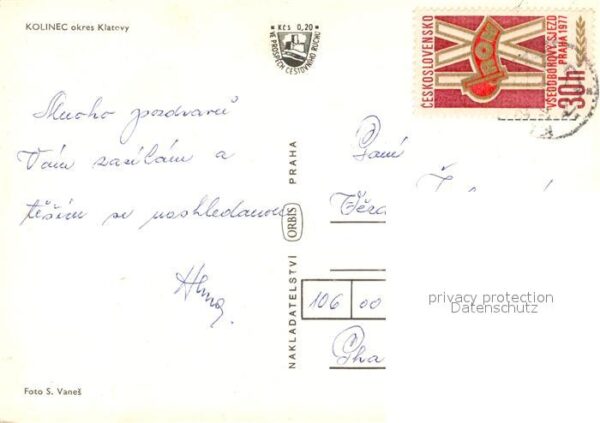 KOLINEC okres Klatovy
Kčs 0,20
VE PROSPĚCH CESTOVNÍHO RUCHU
ČESKOSLOVENSKO
IX
ROH
VŠEODBOROVÝ SJEZD
PRAHA 1977
30h
Mucho pozdravů
Vám zasílám a
těším se nashledanou
Alena
Paní
Věra
106 00
Pha
NAKLADATELSTVÍ ORBIS PRAHA
privacy protection
Datenschutz
Foto S. Vaneš